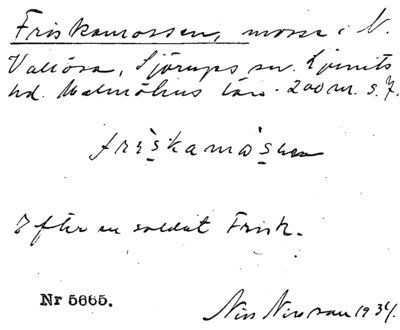 Friskamossen, mosse i N.
Vallösa, Sjörups sn. Ljunits
hd. Malmöhus län. 200 m. s. f.
friskamosen
Efter en soldat Frisk.
Nr 5665.
Nils Nilsson 1934.